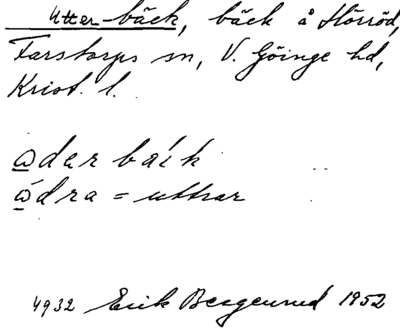 Utterbäck, bäck å Hörröd,
Farstorps sn, V. Göinge hd,
Krist. l.
ωdər baík
ώdra = uttrar
4932 Erik Bergenrud 1952